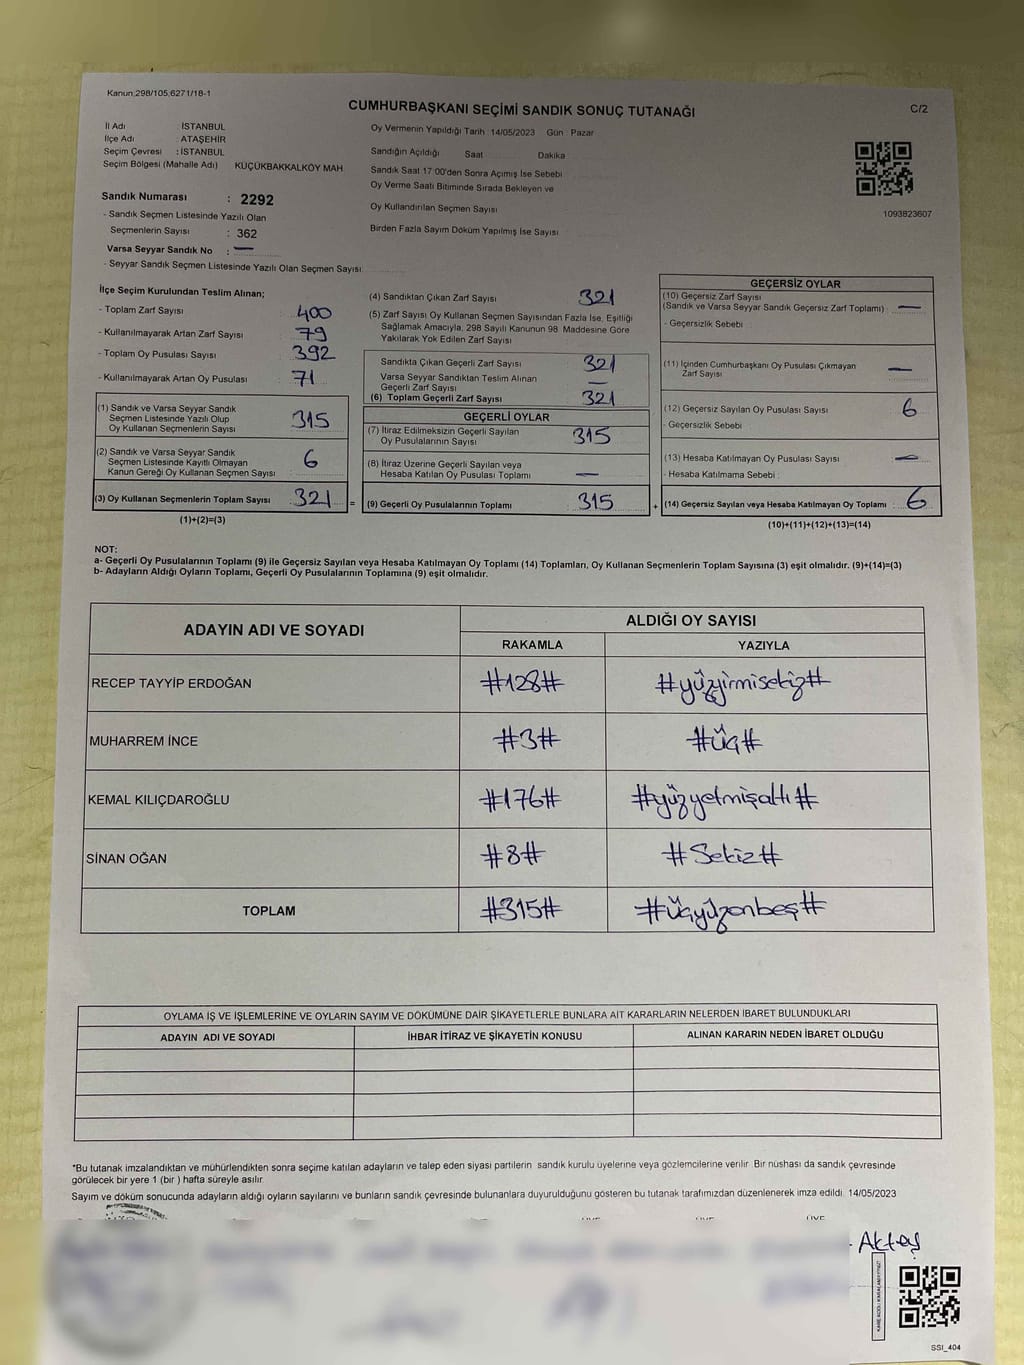 Kanun;298/105,6271/18-1
CUMHURBAŞKANI SEÇİMİ SANDIK SONUÇ TUTANAĞI
C/2
İl Adı : İSTANBUL
İlçe Adı : ATAŞEHİR
Seçim Çevresi : İSTANBUL
Seçim Bölgesi (Mahalle Adı) KÜÇÜKBAKKALKÖY MAH.
Sandık Numarası : 2292
- Sandık Seçmen Listesinde Yazılı Olan
Seçmenlerin Sayısı : 362
Varsa Seyyar Sandık No : —
- Seyyar Sandık Seçmen Listesinde Yazılı Olan Seçmen Sayısı
Oy Vermenin Yapıldığı Tarih : 14/05/2023 Gün : Pazar
Sandığın Açıldığı Saat Dakika
Sandık Saat 17:00'den Sonra Açımış İse Sebebi
Oy Verme Saati Bitiminde Sırada Bekleyen ve
Oy Kullandırılan Seçmen Sayısı
Birden Fazla Sayım Döküm Yapılmış İse Sayısı
1093823607
İlçe Seçim Kurulundan Teslim Alınan;
- Toplam Zarf Sayısı : 400
- Kullanılmayarak Artan Zarf Sayısı : 79
- Toplam Oy Pusulası Sayısı : 392
- Kullanılmayarak Artan Oy Pusulası : 71
(1) Sandık ve Varsa Seyyar Sandık
Seçmen Listesinde Yazılı Olup
Oy Kullanan Seçmenlerin Sayısı : 315
(2) Sandık ve Varsa Seyyar Sandık
Seçmen Listesinde Kayıtlı Olmayan
Kanun Gereği Oy Kullanan Seçmen Sayısı : 6
(3) Oy Kullanan Seçmenlerin Toplam Sayısı : 321 =
(1)+(2)=(3)
(4) Sandıktan Çıkan Zarf Sayısı : 321
(5) Zarf Sayısı Oy Kullanan Seçmen Sayısından Fazla İse, Eşitliği
Sağlamak Amacıyla, 298 Sayılı Kanunun 98. Maddesine Göre
Yakılarak Yok Edilen Zarf Sayısı
Sandıkta Çıkan Geçerli Zarf Sayısı : 321
Varsa Seyyar Sandıktan Teslim Alınan
Geçerli Zarf Sayısı : —
(6) Toplam Geçerli Zarf Sayısı : 321
GEÇERLİ OYLAR
(7) İtiraz Edilmeksizin Geçerli Sayılan
Oy Pusulalarının Sayısı : 315
(8) İtiraz Üzerine Geçerli Sayılan veya
Hesaba Katılan Oy Pusulaları Toplamı : —
(9) Geçerli Oy Pusulalarının Toplamı : 315 +
GEÇERSİZ OYLAR
(10) Geçersiz Zarf Sayısı
(Sandık ve Varsa Seyyar Sandık Geçersiz Zarf Toplamı) : —
- Geçersizlik Sebebi
(11) İçinden Cumhurbaşkanı Oy Pusulası Çıkmayan
Zarf Sayısı : —
(12) Geçersiz Sayılan Oy Pusulası Sayısı : 6
- Geçersizlik Sebebi
(13) Hesaba Katılmayan Oy Pusulası Sayısı : —
- Hesaba Katılmama Sebebi :
(14) Geçersiz Sayılan veya Hesaba Katılmayan Oy Toplamı : 6
(10)+(11)+(12)+(13)=(14)
NOT:
a- Geçerli Oy Pusulalarının Toplamı (9) ile Geçersiz Sayılan veya Hesaba Katılmayan Oy Toplamı (14) Toplamları, Oy Kullanan Seçmenlerin Toplam Sayısına (3) eşit olmalıdır. (9)+(14)=(3)
b- Adayların Aldığı Oyların Toplamı, Geçerli Oy Pusulalarının Toplamına (9) eşit olmalıdır.
ADAYIN ADI VE SOYADI ALDIĞI OY SAYISI
RAKAMLA YAZIYLA
RECEP TAYYİP ERDOĞAN #128# #yüzyirmisekiz#
MUHARREM İNCE #3# #üç#
KEMAL KILIÇDAROĞLU #176# #yüzyetmişaltı#
SİNAN OĞAN #8# #Sekiz#
TOPLAM #315# #üçyüzonbeş#
OYLAMA İŞ VE İŞLEMLERİNE VE OYLARIN SAYIM VE DÖKÜMÜNE DAİR ŞİKAYETLERLE BUNLARA AİT KARARLARIN NELERDEN İBARET BULUNDUKLARI
ADAYIN ADI VE SOYADI İHBAR İTİRAZ VE ŞİKAYETİN KONUSU ALINAN KARARIN NEDEN İBARET OLDUĞU
*Bu tutanak imzalandıktan ve mühürlendikten sonra seçime katılan adayların ve talep eden siyasi partilerin sandık kurulu üyelerine veya gözlemcilerine verilir. Bir nüshası da sandık çevresinde
görülecek bir yere 1 (bir ) hafta süreyle asılır.
Sayım ve döküm sonucunda adayların aldığı oyların sayılarını ve bunların sandık çevresinde bulunanlara duyurulduğunu gösteren bu tutanak tarafımızdan düzenlenerek imza edildi. 14/05/2023
ÜYE ÜYE ÜYE
Aktaş
SSI_404